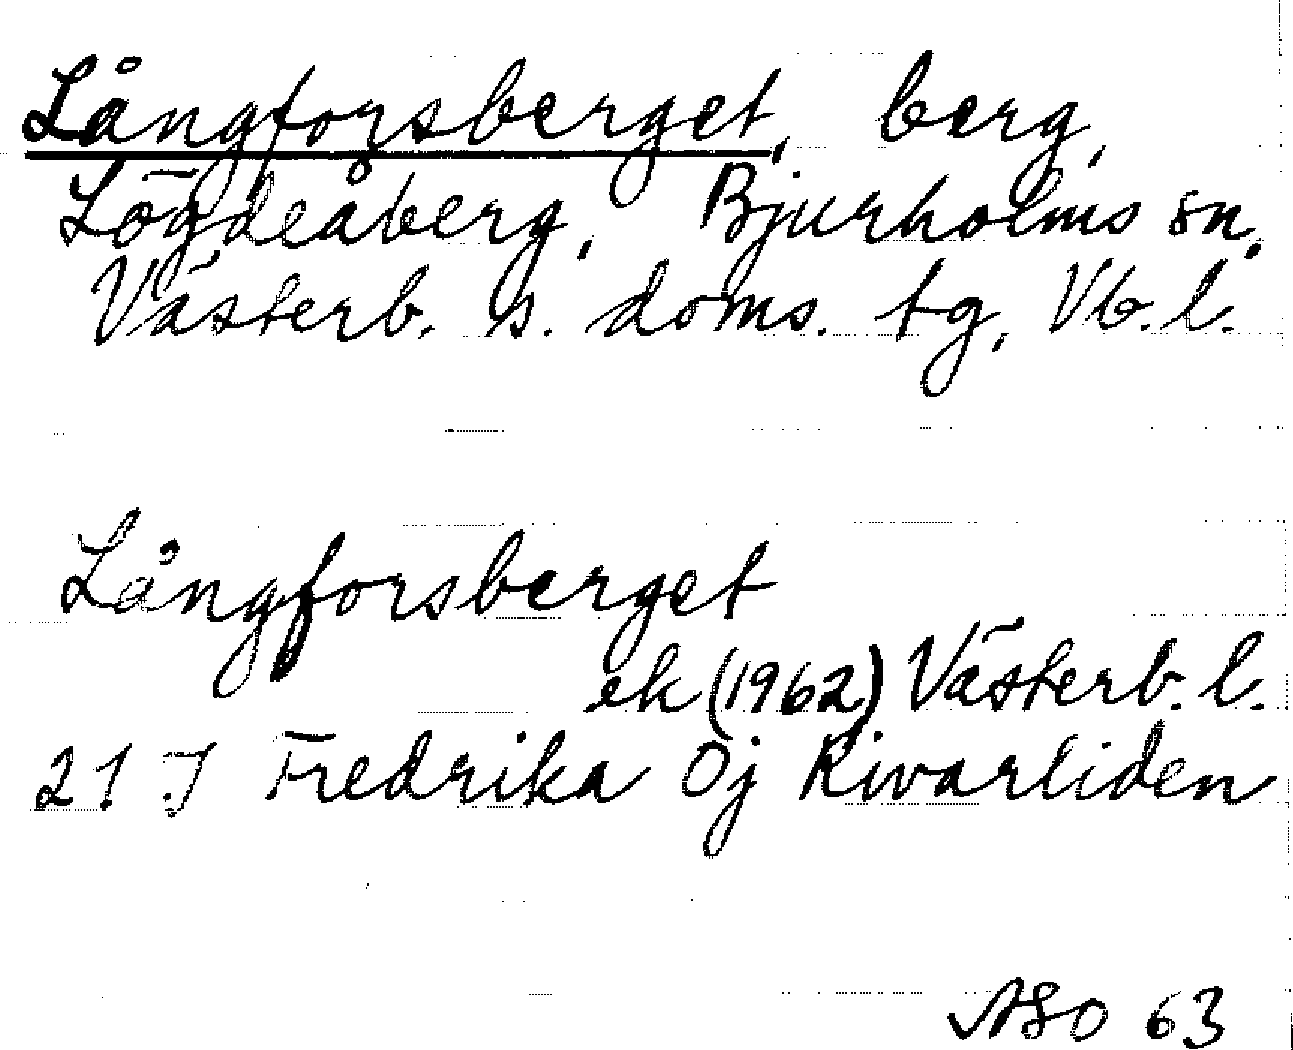 Långforsberget, berg,
Lögdeåberg, Bjurholms sn,
Västerb. s. doms. tg, Vb. l.
Långforsberget
ek (1962) Västerb. l.
21 J Fredrika Öj Rivarliden
ASO 63